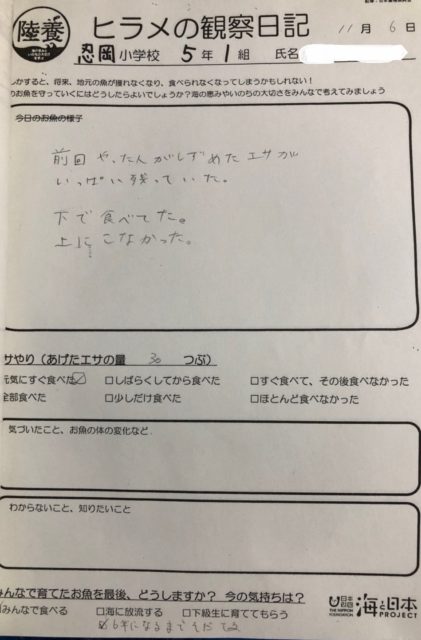 陸養
ヒラメの観察日記
11月6日
忍岡小学校 5年1組 氏名
しかすると、将来、地元の魚が獲れなくなり、食べられなくなってしまうかもしれない!
のお魚を守っていくにはどうしたらよいでしょうか?海の恵みやいのちの大切さをみんなで考えてみましょう
今日のお魚の様子
前回や、たんがしずめたエサが
いっぱい残っていた。
下で食べてた。
上にこなかった。
サやり(あげたエサの量 30 つぶ)
元気にすぐ食べた☑ □しばらくしてから食べた □すぐ食べて、その後食べなかった
全部食べた □少しだけ食べた □ほとんど食べなかった
気づいたこと、お魚の体の変化など
わからないこと、知りたいこと
みんなで育てたお魚を最後、どうしますか? 今の気持ちは?
みんなで食べる □海に放流する □下級生に育ててもらう
☑6年になるまでそだてる
日本財団
THE NIPPON FOUNDATION
海と日本
PROJECT